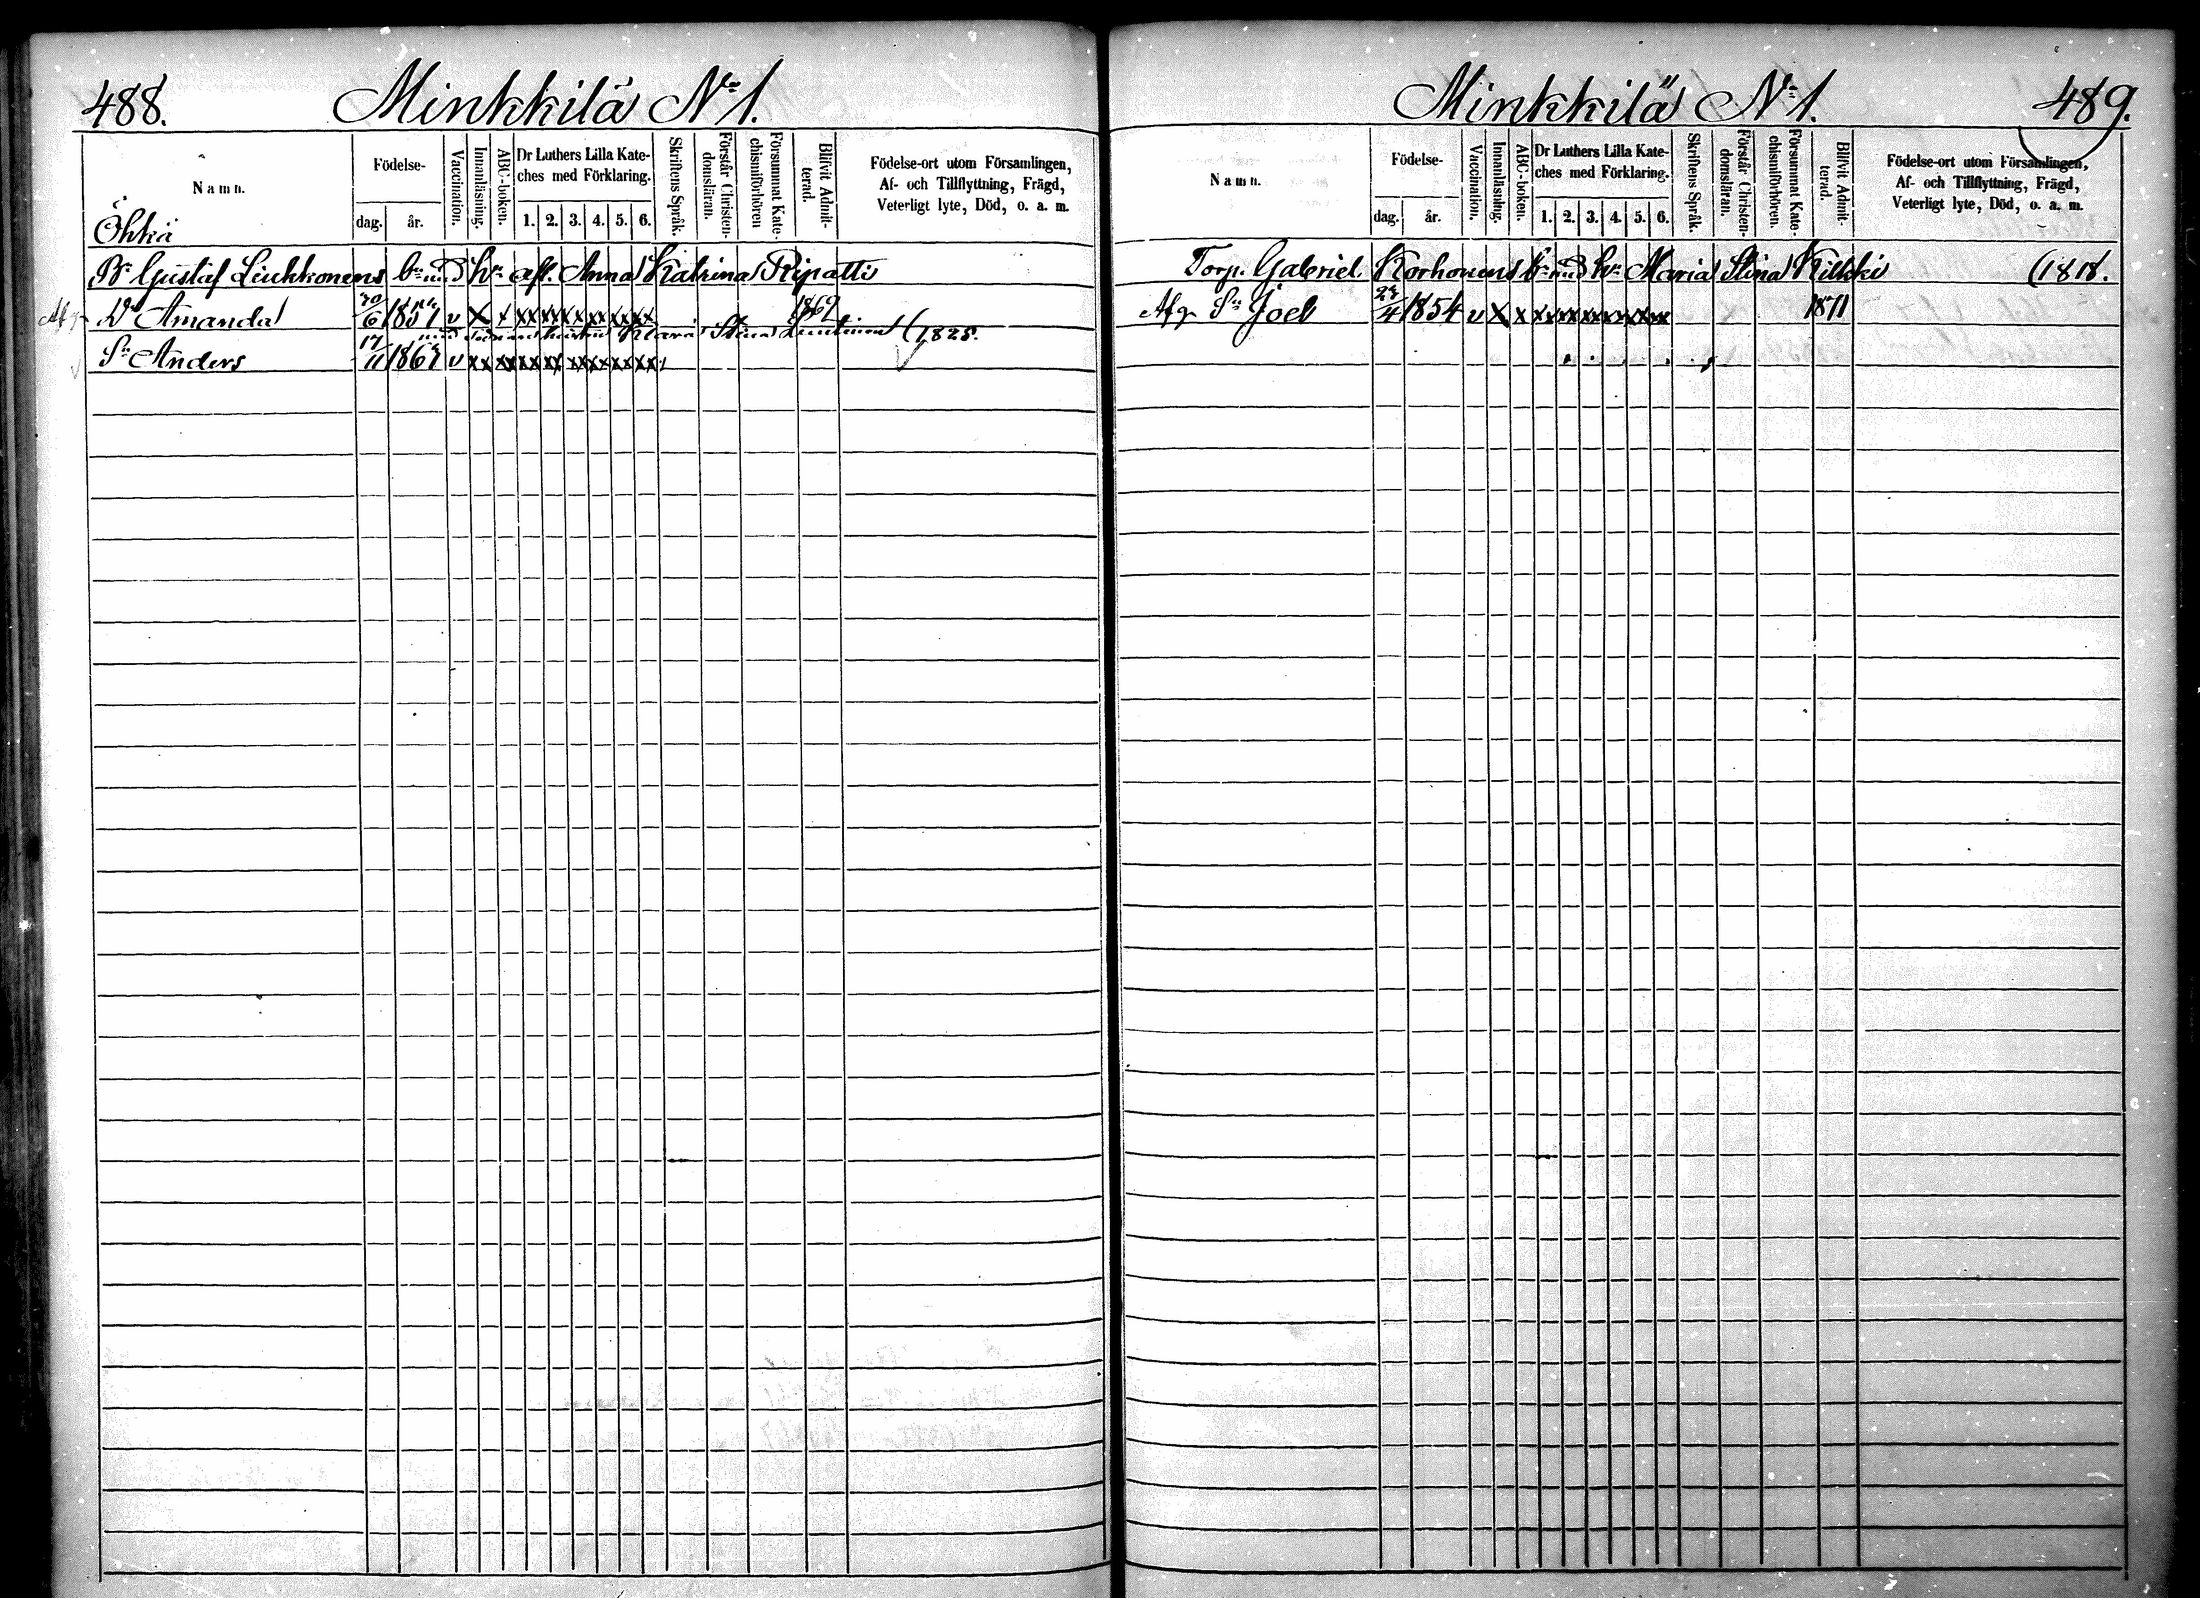 488.
Minkkilä No 1.
Namn.
Födelse-
dag.
år.
Vaccination.
Innanläsning.
ABC-boken.
Dr Luthers Lilla Kate-
ches med Förklaring.
1. 2. 3. 4. 5. 6.
Skriftens Språk.
Förstår Christen-
domsläran.
Försummat Kate-
chismiförhören
Blifvit Admit-
terad.
Födelse-ort utom Församlingen,
Af- och Tillflyttning, Frägd,
Veterligt lyte, Död, o. a. m.
Öhkä
Gustaf Leukkonens bn med hu afl. Anna Katrina Ripatti
Dr Amanda 6 1851 v x x xx xx xx xx xx xx 1869
med Stina (1825.
Sn Anders 17/11 1861 v xx xx xx xx xx xx xx xx
Minkkilä No 1.
489.
Namn.
Födelse-
dag.
år.
Vaccination.
Innanläsning.
ABC-boken.
Dr Luthers Lilla Kate-
ches med Förklaring.
1. 2. 3. 4. 5. 6.
Skriftens Språk.
Förstår Christen-
domsläran.
Försummat Kate-
chismiförhören.
Blifvit Admit-
terad.
Födelse-ort utom Församlingen,
Af- och Tillflyttning, Frägd,
Veterligt lyte, Död, o. a. m.
Torp. Gabriel Korhonens bn med hu Maria Stina Kilkki (1818.
Afg Sn Joel 4 1854 v x x xx xx xx xx xx xx 1871